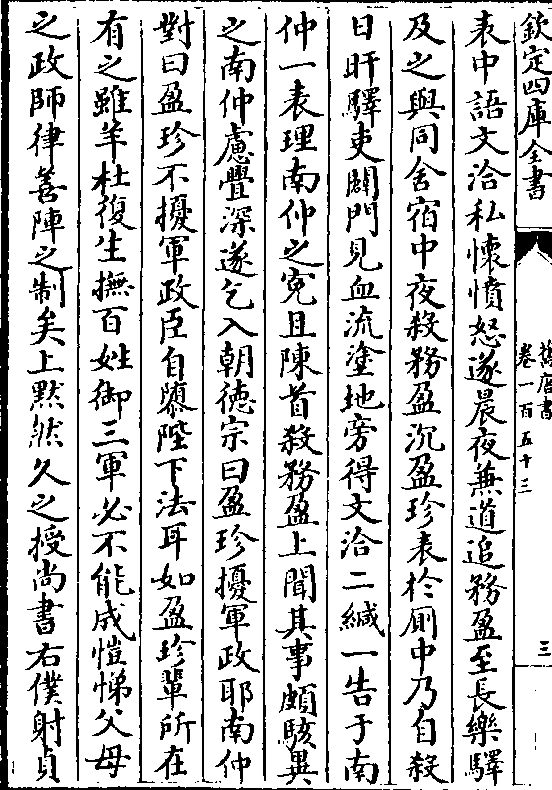 欽定四庫全書
舊唐書
卷一百五十三
三
表中語文洽私懷憤怒遂晨夜兼道追務盈至長樂驛
及之與同舍宿中夜殺務盈沉盈珍表於厠中乃自殺
日旰驛吏闢門見血流塗地旁得文洽二緘一告于南
仲一表理南仲之寃且陳首殺務盈上聞其事頗駭異
之南仲慮釁深遂乞入朝徳宗曰盈珍擾軍政耶南仲
對曰盈珍不擾軍政臣自隳陛下法耳如盈珍輩所在
有之雖羊杜復生撫百姓御三軍必不能成愷悌父母
之政師律善陣之制矣上黙然久之授尚書右僕射貞